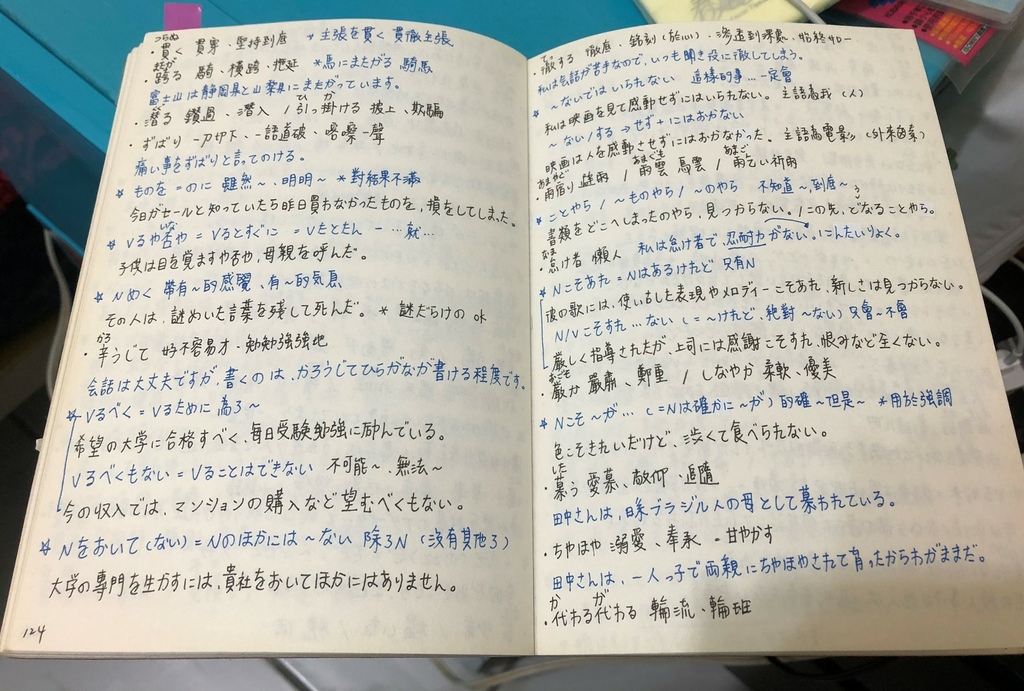 つらぬ
・貫く 貫穿、堅持到底 *主張を貫く 貫徹主張
またが
・跨る 騎、橫跨、拖延 *馬にまたがる 騎馬
富士山は静岡県と山梨県にまたがっています。
ひ か
・潜る 鑽過、潛入 / 引っ掛ける 披上、欺騙
・ずばり 一刀切下、一語道破、喀嚓一聲
痛い事をずばりと言ってのける。
☆ ものを = のに 雖然~、明明~ *對結果不滿
今日がセールと知っていたら昨日買わなかったものを、損をしてしまった。
いな
☆ Vるや否や = Vるとすぐに = Vたとたん 一…就…
子供は目を覚ますや否や、母親を呼んだ。
☆ Nめく 帶有~的感覺、有~的気息
その人は、謎めいた言葉を残して死んだ。 * 謎だらけの ok
かろ
・辛うじて 好不容易才、勉勉強強地
会話は大丈夫ですが、書くのは、かろうじてひらがなが書ける程度です。
☆ Vるべく = Vるために 為了~
希望の大学に合格すべく、毎日受験勉強に励んでいる。
Vるべくもない = Vることはできない 不可能~、無法~
今の収入では、マンションの購入など望むべくもない。
☆ Nをおいて(ない) = Nのほかには~ない 除了N (沒有其他了)
大学の専門を生かすには、貴社をおいてほかにはありません。
124
てっ
・徹する 徹底、銘刻(於心)、滲透到深處、始終如一
私は会話が苦手なので、いつも聞き役に徹してしまう。
☆ ~ないではいられない 這樣的事…一定會
私は映画を見て感動せずにはいられない。 主語為我 (人)
~ない/する → せず + にはおかない
映画は人を感動させずにはおかなかった。 主語為電影 (外來因素)
あまやど あまぐも あまご
・雨宿り 避雨 / 雨雲 烏雲 / 雨乞い 祈雨
☆ ことやら / ~ものやら / ~のやら 不知道~到底~
書類をどこへしまったのやら、見つからない。/この先、どなることやら。
なま
・怠け者 懶人 私は怠け者で、忍耐力がない。にんたいりょく。
☆ Nこそあれ = Nはあるけれど 只有N
彼の歌には、使い古した表現やメロディーこそあれ、新しさは見つからない。
N/Vこそすれ…ない (=~けれど、絶對~ない) 只會~不會
厳しく指導されたが、上司には感謝こそすれ、恨みなど全くない。
おごそ
・厳か 嚴肅、鄭重 / しなやか 柔軟、優美
☆ Nこそ~が… (=Nは確かに~が) 的確~但是~ *用於強調
色こそきれいだけど、渋くて食べられない。
した
・慕う 愛慕、敬仰、追隨
田中さんは、日系ブラジル人の母として慕われている。
・ちやほや 溺愛、奉承 = 甘やかす
田中さんは、一人っ子で両親にちやほやされて育ったからわがままだ。
か が
・代わる代わる 輪流、輪班